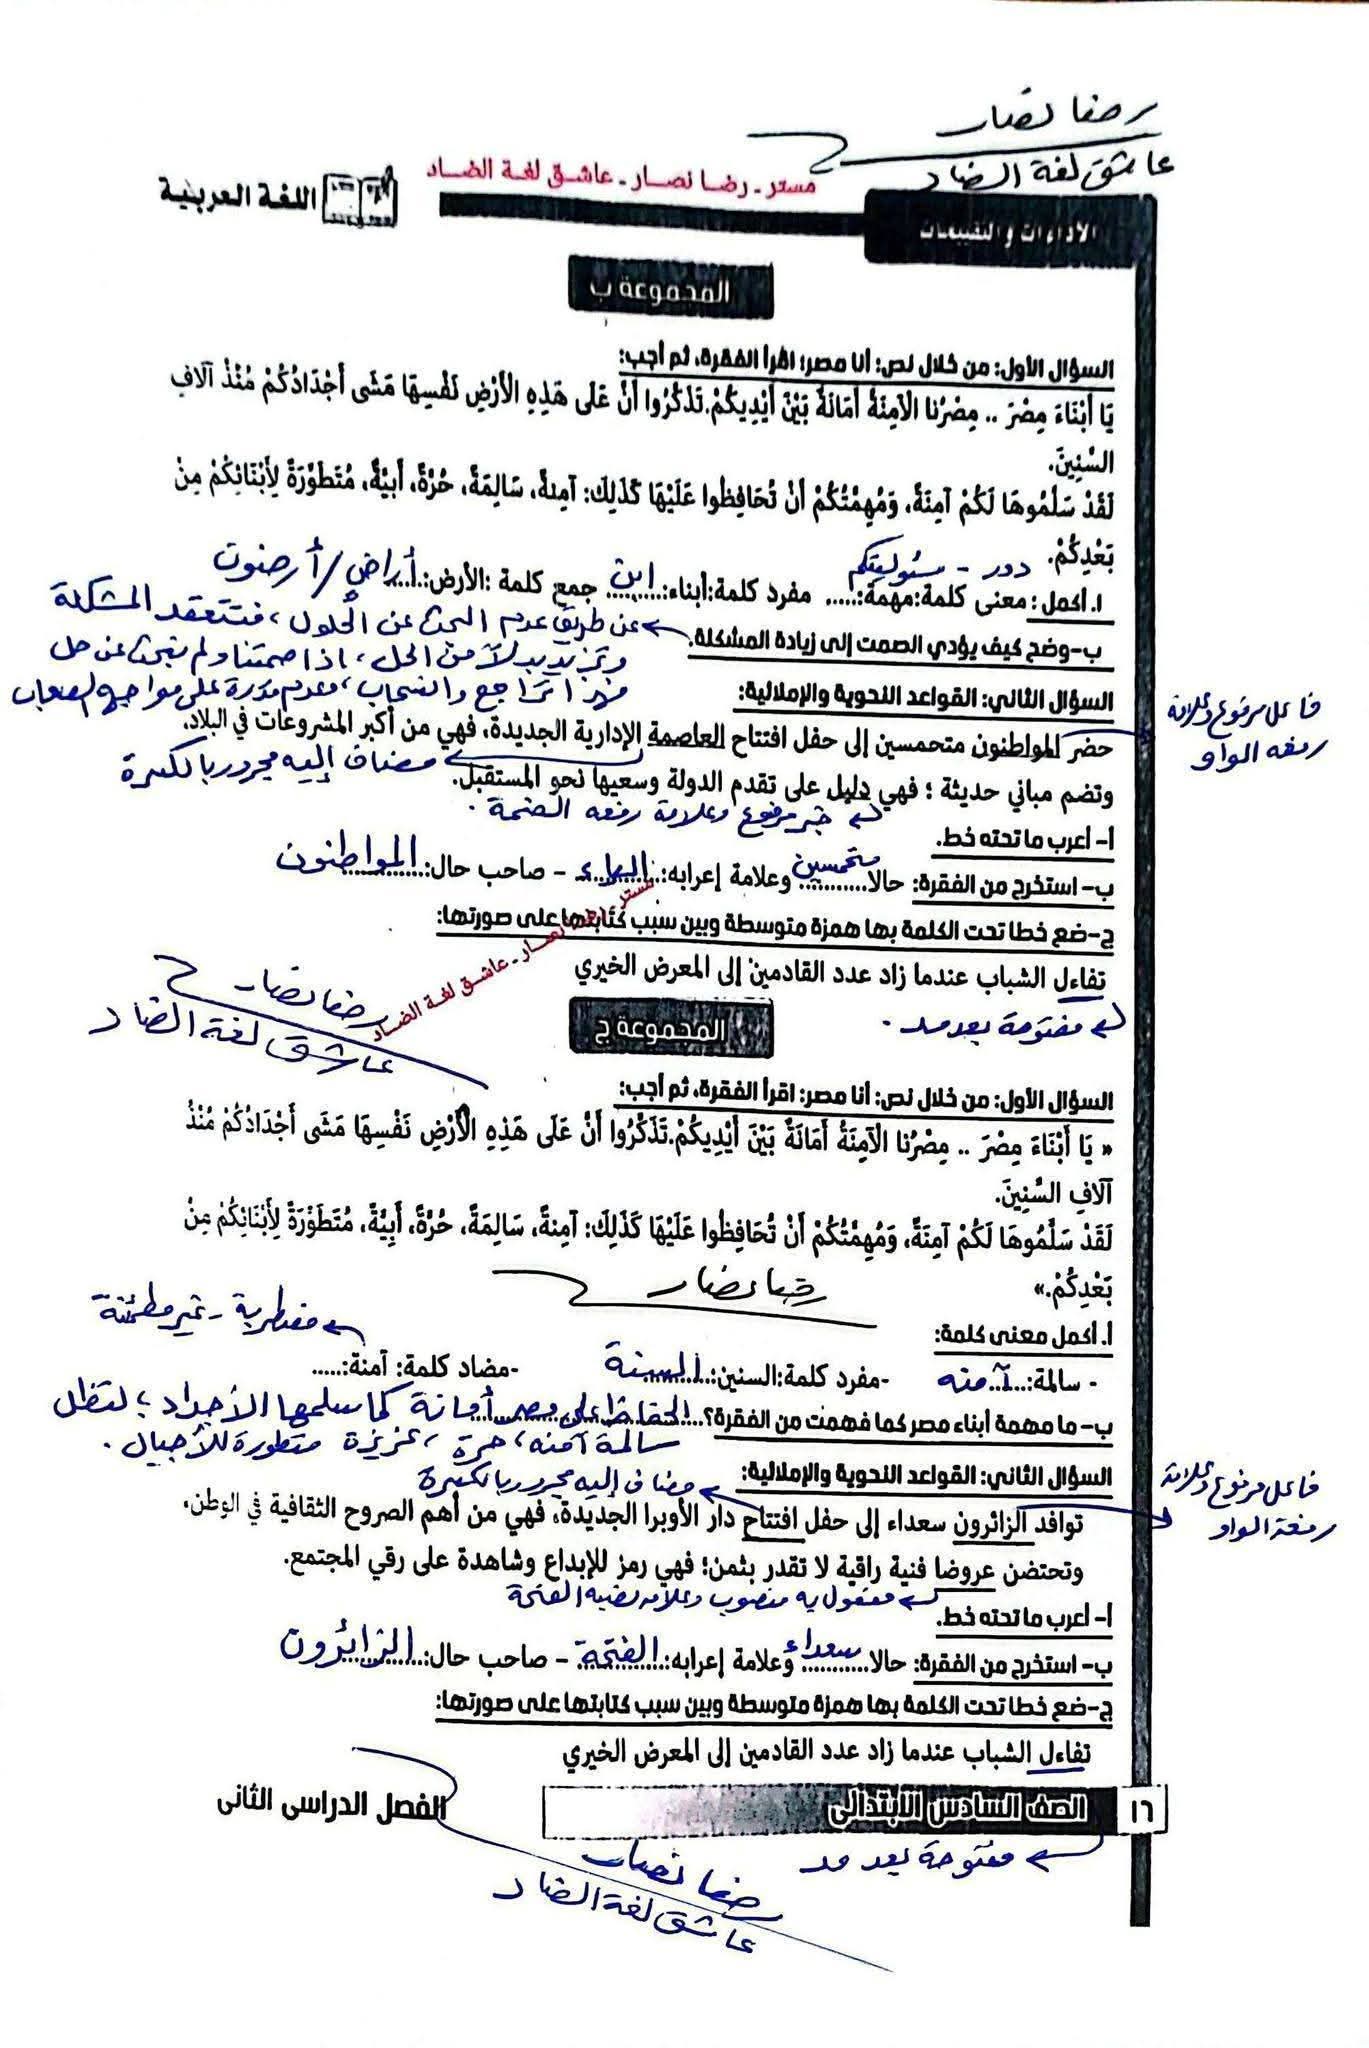 رضا نصار
عاشق لغة الضاد
مستر - رضا نصار - عاشق لغة الضاد
اللغة العربية
الأداءات والتقييمات
المجموعة ب
السؤال الأول: من خلال نص: أنا مصر؛ اقرأ الفقرة، ثم أجب:
يَا أَبْنَاءَ مِصْرَ .. مِصْرُنا الْآمِنَةُ أَمَانَةٌ بَيْنَ أَيْدِيكُمْ.تَذَكَّرُوا أَنَّ عَلَى هَذِهِ الْأَرْضِ نَفْسِهَا مَشَى أَجْدَادُكُمْ مُنْذُ آلَافِ
السِّنِينَ.
لَقَدْ سَلَّمُوهَا لَكُمْ آمِنَةً، وَمُهِمَّتُكُمْ أَنْ تُحَافِظُوا عَلَيْهَا كَذَلِكَ: آمِنةً، سَالِمَةً، حُرَّةً، أَبِيَّةً، مُتَطَوِّرَةً لِأَبْنَائِكُمْ مِنْ
بَعْدِكُمْ.
دور - مسئوليتكم
ابن
أراضي/أرضون
ا. أكمل: معنى كلمة:مهمة:...... مفرد كلمة:أبناء:......... جمع كلمة :الأرض:......
ب-وضح كيف يؤدي الصمت إلى زيادة المشكلة.
عن طريق عدم البحث عن الحلول، فتتعقد المشكلة
وتزيد بدلاً من الحل، اذا صمتنا ولم نبحث عن حل
فهذا تراجع وانسحاب، وعدم قدرة على مواجهة الصعاب
السؤال الثاني: القواعد النحوية والإملالية:
حضر المواطنون متحمسين إلى حفل افتتاح العاصمة الإدارية الجديدة، فهي من أكبر المشروعات في البلاد.
فاعل مرفوع وعلامة
رفعه الواو
مضاف إليه مجرور بالكسرة
وتضم مباني حديثة ؛ فهي دليل على تقدم الدولة وسعيها نحو المستقبل.
خبر مرفوع وعلامة رفعه الضمة.
أ- أعرب ما تحته خط.
ب- استخرج من الفقرة: حالا........... وعلامة إعرابه:............ – صاحب حال:............
متحمسين
الياء
المواطنون
ج-ضع خطا تحت الكلمة بها همزة متوسطة وبين سبب كتابتها على صورتها:
تفاءل الشباب عندما زاد عدد القادمين إلى المعرض الخيري
مفتوحة بعد مد.
مستر - رضا نصار - عاشق لغة الضاد
رضا نصار
عاشق لغة الضاد
المجموعة ج
السؤال الأول: من خلال نص: أنا مصر: اقرأ الفقرة، ثم أجب:
« يَا أَبْنَاءَ مِصْرَ .. مِصْرُنا الْآمِنَةُ أَمَانَةٌ بَيْنَ أَيْدِيكُمْ.تَذَكَّرُوا أَنَّ عَلَى هَذِهِ الْأَرْضِ نَفْسِهَا مَشَى أَجْدَادُكُمْ مُنْذُ
آلَافِ السِّنِينَ.
لَقَدْ سَلَّمُوهَا لَكُمْ آمِنَةً، وَمُهِمَّتُكُمْ أَنْ تُحَافِظُوا عَلَيْهَا كَذَلِكَ: آمِنةً، سَالِمَةً، حُرَّةً، أَبِيَّةً، مُتَطَوِّرَةً لِأَبْنَائِكُمْ مِنْ
بَعْدِكُمْ.»
رضا نصار
أ. أكمل معنى كلمة:
- سالمة:...... -مفرد كلمة:السنين:............ -مضاد كلمة: آمنة:......
آمنه
السنة
مضطربة - غير مطمئنة
ب- ما مهمة أبناء مصر كما فهمت من الفقرة؟..................
الحفاظ على مصر أمانة كما سلمها الأجداد؛ لتظل
سالمة آمنه، حرة، عزيزة متطورة للأجيال.
السؤال الثاني: القواعد النحوية والإملالية:
مضاف إليه مجرور بالكسرة
توافد الزائرون سعداء إلى حفل افتتاح دار الأوبرا الجديدة، فهي من أهم الصروح الثقافية في الوطن،
فاعل مرفوع وعلامة
رفعه الواو
وتحتضن عروضا فنية راقية لا تقدر بثمن؛ فهي رمز للإبداع وشاهدة على رقي المجتمع.
مفعول به منصوب وعلامة نصبه الفتحة
أ- أعرب ما تحته خط.
ب- استخرج من الفقرة: حالا........... وعلامة إعرابه:............ – صاحب حال:............
سعداء
الفتحة
الزائرون
ج-ضع خطا تحت الكلمة بها همزة متوسطة وبين سبب كتابتها على صورتها:
تفاءل الشباب عندما زاد عدد القادمين إلى المعرض الخيري
١٦
الصف السادس الابتدائى
الفصل الدراسى الثانى
مفتوحة بعد مد
رضا نصار
عاشق لغة الضاد